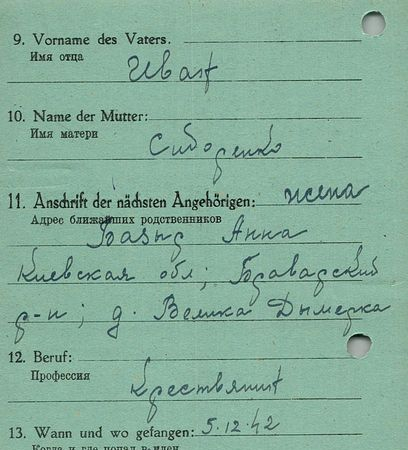 9. Vorname des Vaters.
Имя отца
Иван
10. Name der Mutter:
Имя матери
Сидоренко
11. Anschrift der nächsten Angehörigen: жена
Адрес ближайших родственников
Анна
Киевская обл; Броварский
р-н; д. Велика Дымерка
12. Beruf:
Профессия
Крестьянин
13. Wann und wo gefangen: 5.12.42
Когда и где попал в плен